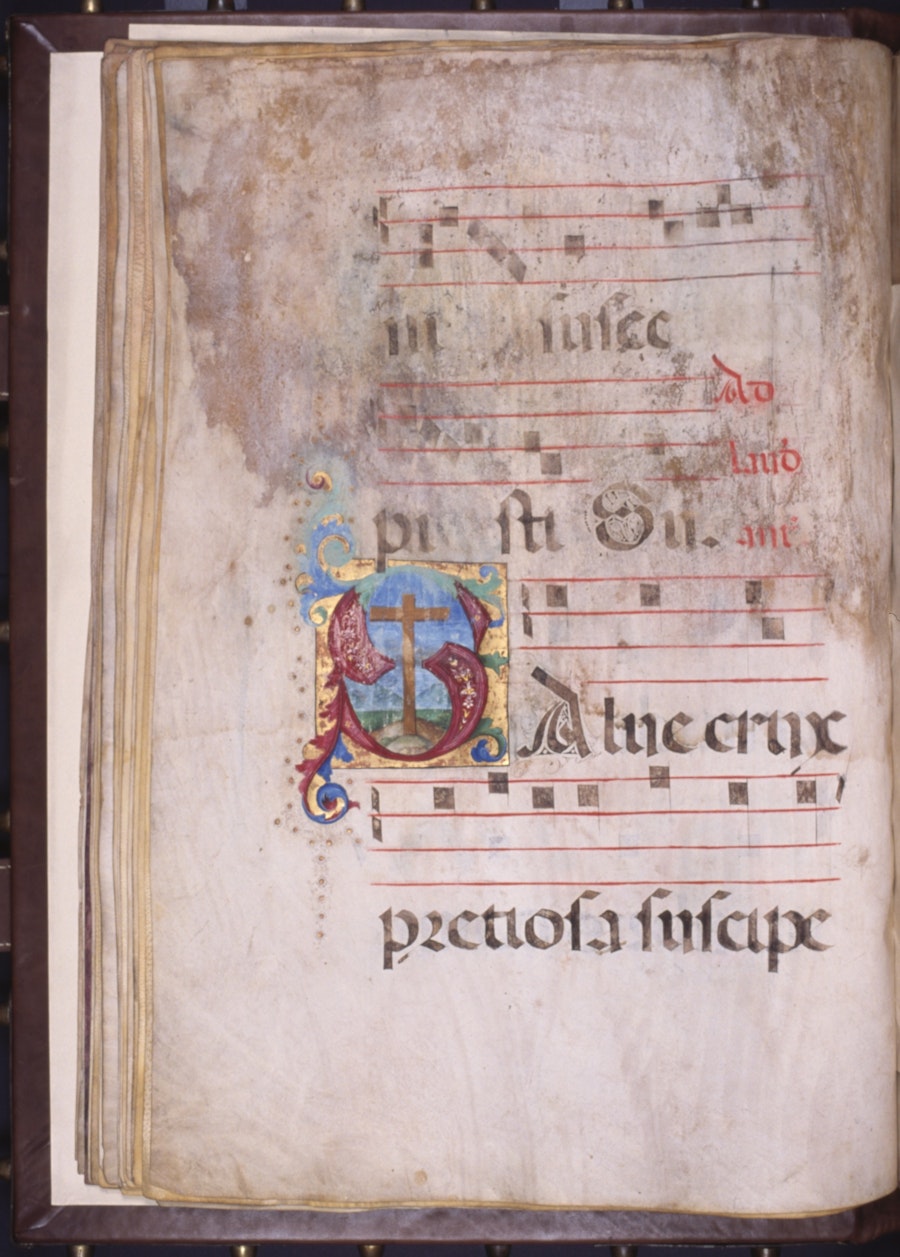 susce
Ad
laud
pi sti Su. an̄
SAlue crux
pretiosa suscipe